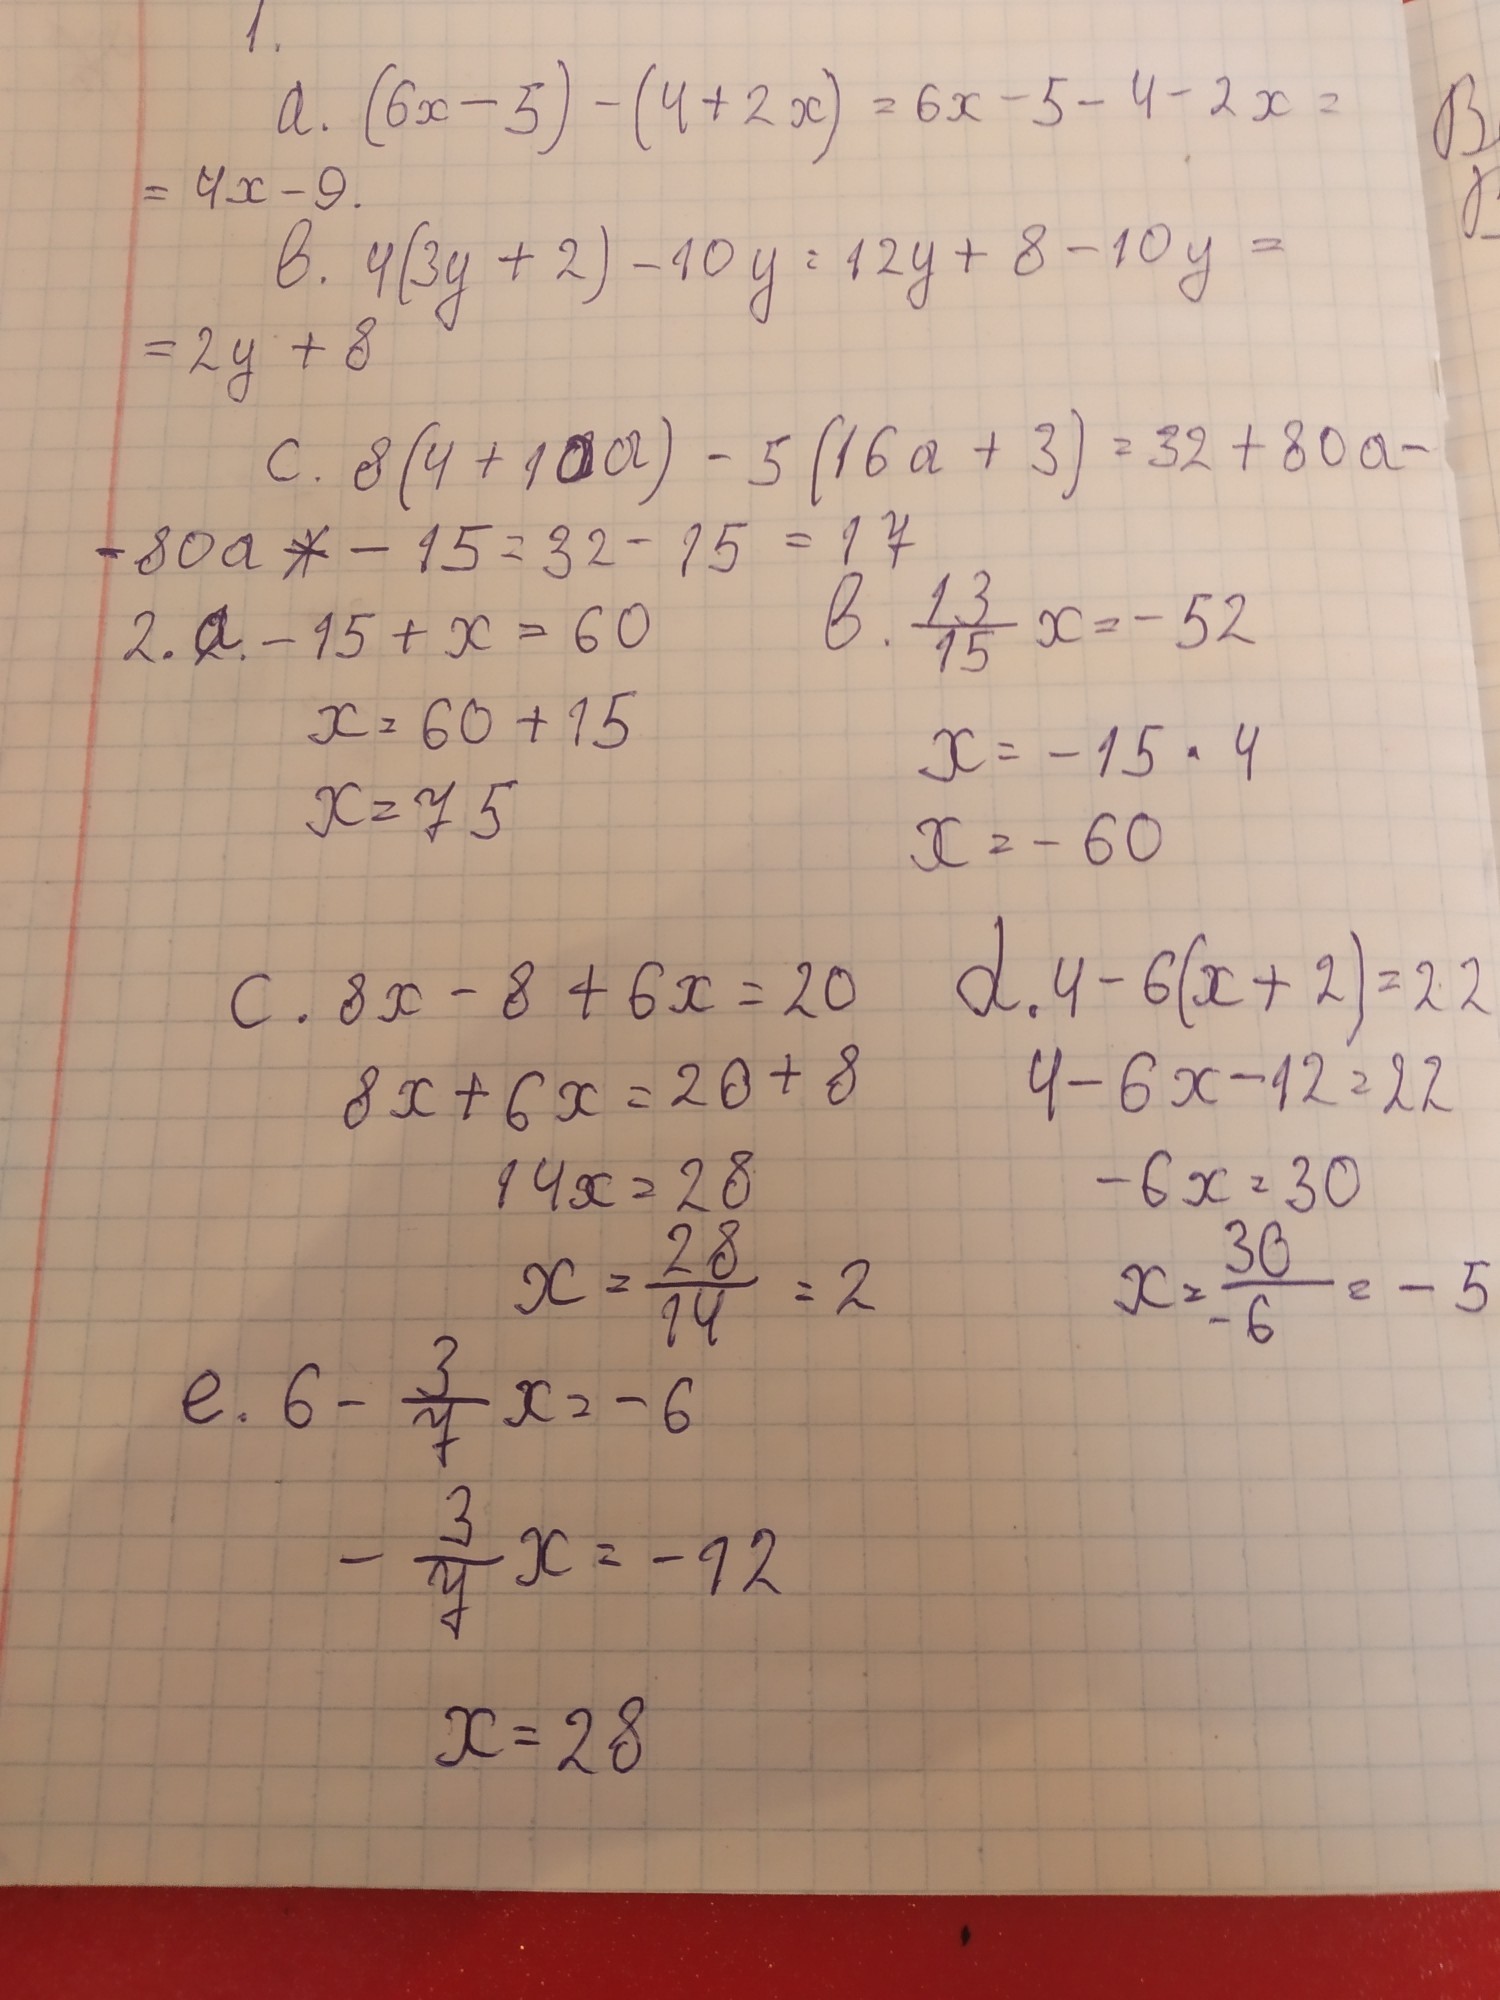 1.
a. (6x - 5) - (4 + 2x) = 6x - 5 - 4 - 2x =
= 4x - 9.
b. 4(3y + 2) - 10y = 12y + 8 - 10y =
= 2y + 8
c. 8(4 + 10a) - 5(16a + 3) = 32 + 80a -
- 80a - 15 = 32 - 15 = 17
2. a. - 15 + x = 60
x = 60 + 15
x = 75
b. 13/15 x = - 52
x = - 15 · 4
x = - 60
c. 8x - 8 + 6x = 20
8x + 6x = 20 + 8
14x = 28
x = 28/14 = 2
d. 4 - 6(x + 2) = 22
4 - 6x - 12 = 22
- 6x = 30
x = 30/-6 = - 5
e. 6 - 3/7 x = - 6
- 3/7 x = - 12
x = 28